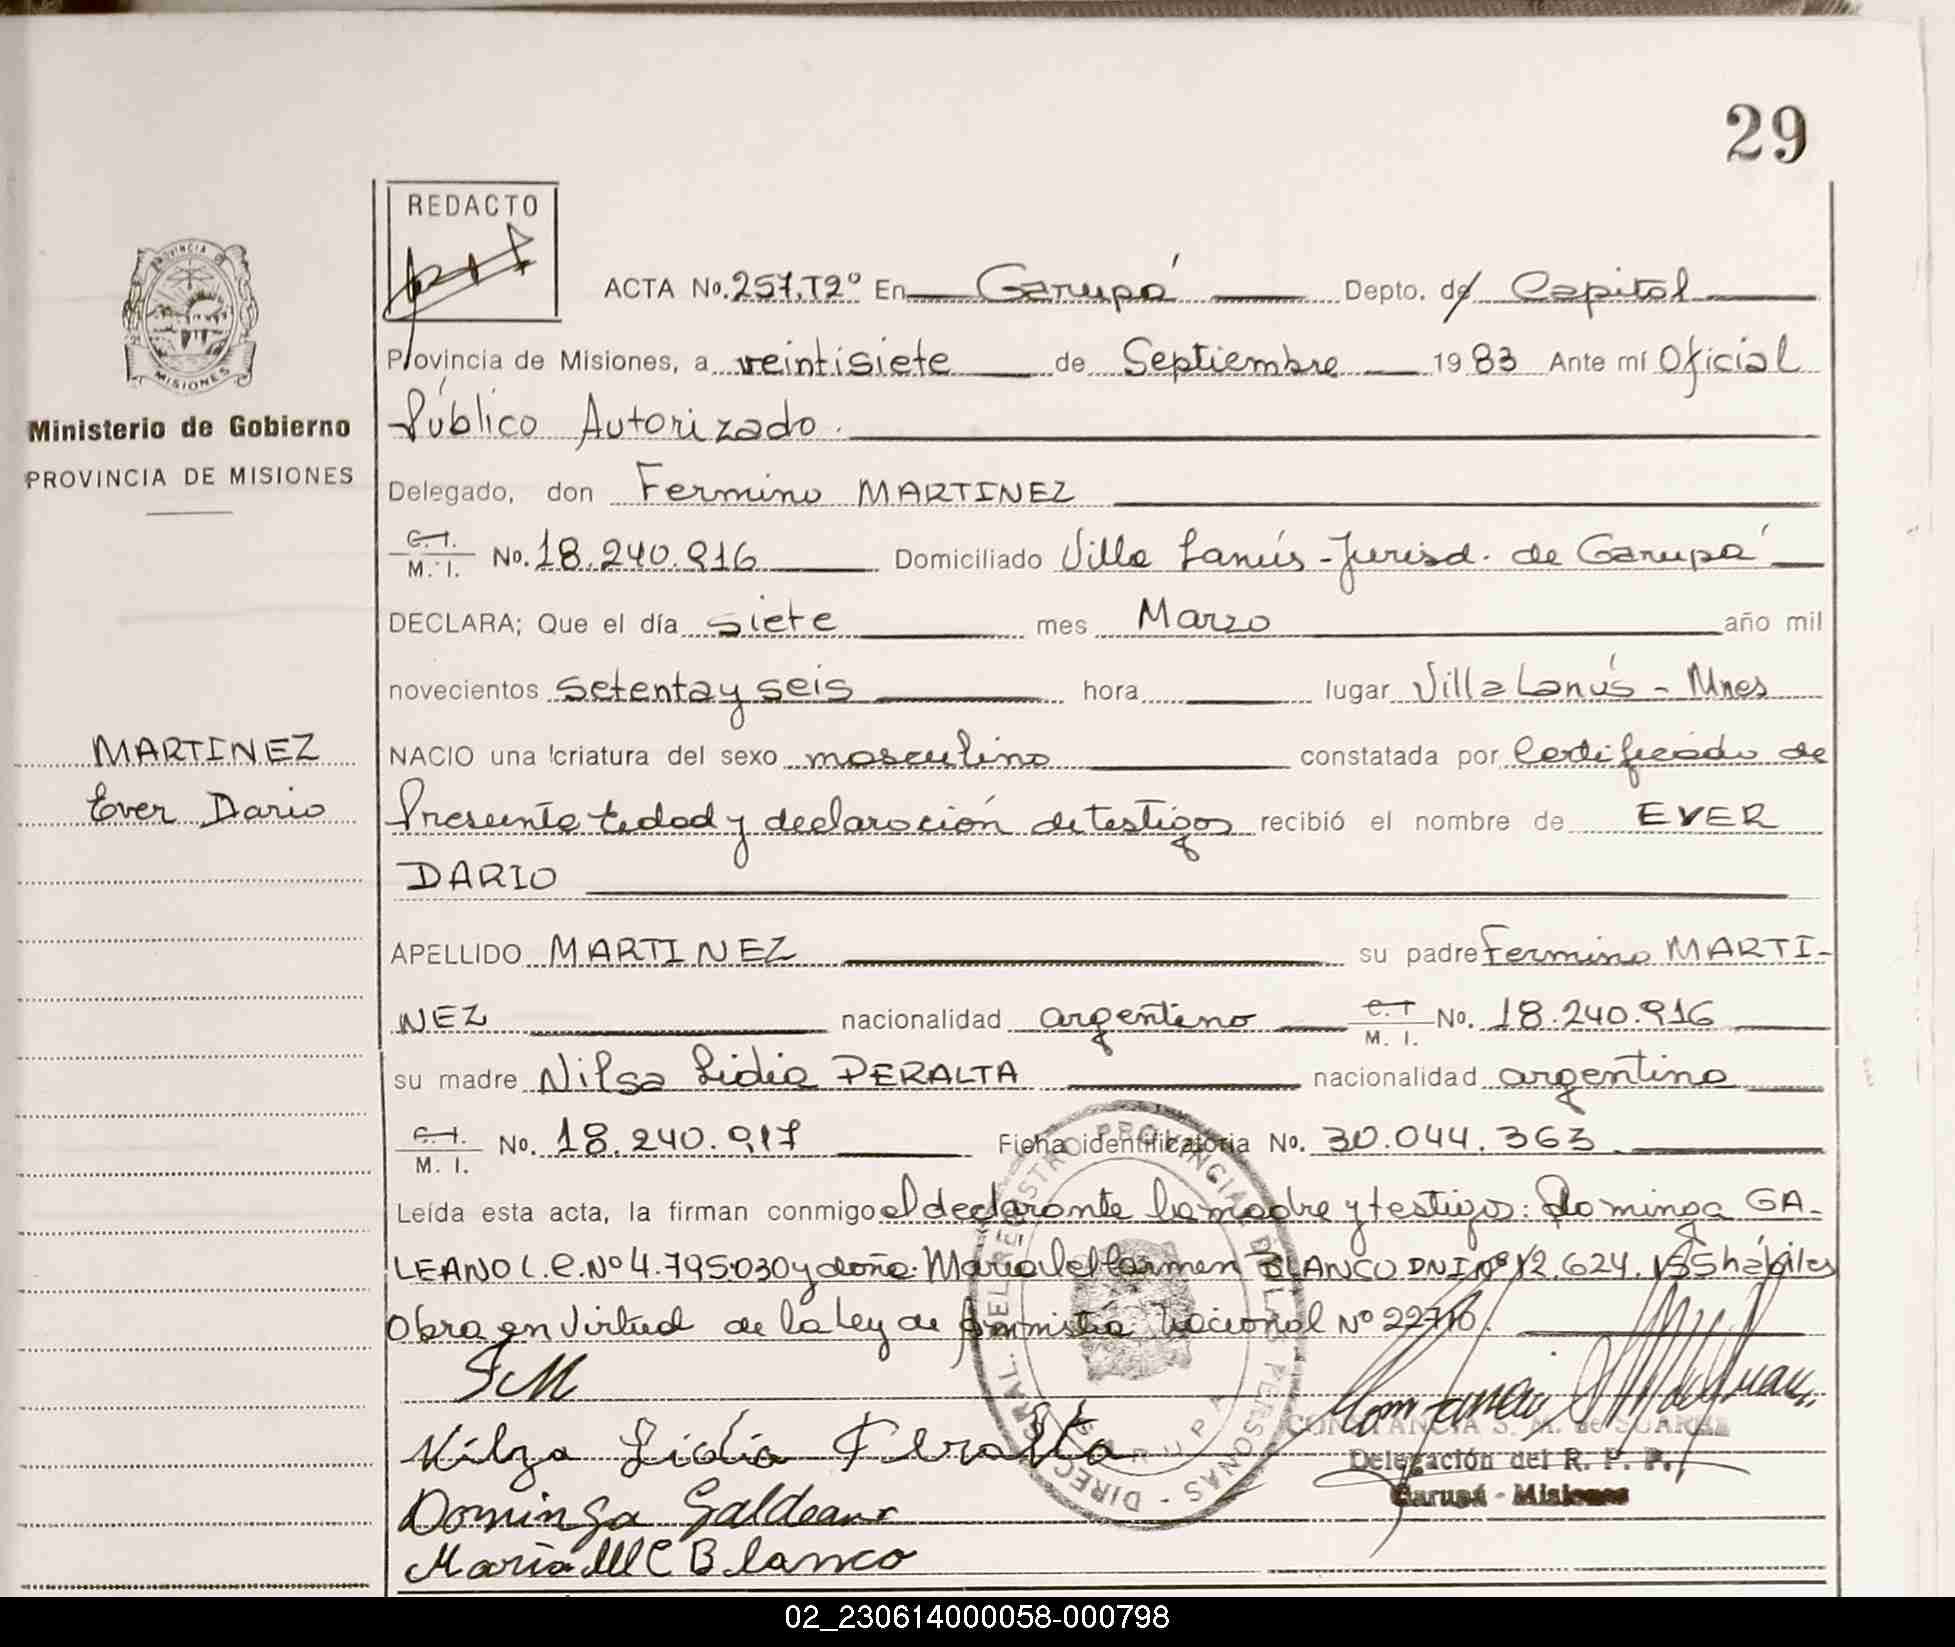 29
REDACTO
ACTA No. 257.T2º En Garupá Depto. de Capital
Provincia de Misiones, a veintisiete de Septiembre 1983 Ante mí Oficial
Público Autorizado.
Delegado, don Fermino MARTINEZ
C.I. M. I. No. 18.240.916 Domiciliado Villa Lanús - Jurisd. de Garupá
DECLARA; Que el día siete mes Marzo año mil
novecientos setenta y seis hora lugar Villa Lanús - Mnes
NACIO una criatura del sexo masculino constatada por Certificado de
Presunta edad y declaración de testigos recibió el nombre de EVER
DARIO
APELLIDO MARTINEZ su padre Fermino MARTI-
NEZ nacionalidad argentino C.I M. I. No. 18.240.916
su madre Nilsa Lidia PERALTA nacionalidad argentina
C.I. M. I. No. 18.240.917 Ficha identificatoria No. 30.044.363
Leída esta acta, la firman conmigo el declarante la madre y testigos: Dominga GA-
LEANO L.C. Nº 4.795.030 y doña María del Carmen BLANCO DNI Nº 12.624.155 hábiles
Obra en Virtud de la Ley de Amnistía Nacional Nº
FM
Nilza Lidia Peralta
Dominga Galdeano
María del C Blanco
CONSTANCIA S. M. de SUAREZ
Delegación del R. P. P.
Garupá - Misiones
DIREC. GRAL. DEL REGISTRO PROVINCIAL DE LAS PERSONAS
GARUPA
PROVINCIA
MISIONES
Ministerio de Gobierno
PROVINCIA DE MISIONES
MARTINEZ
Ever Dario
02_230614000058-000798